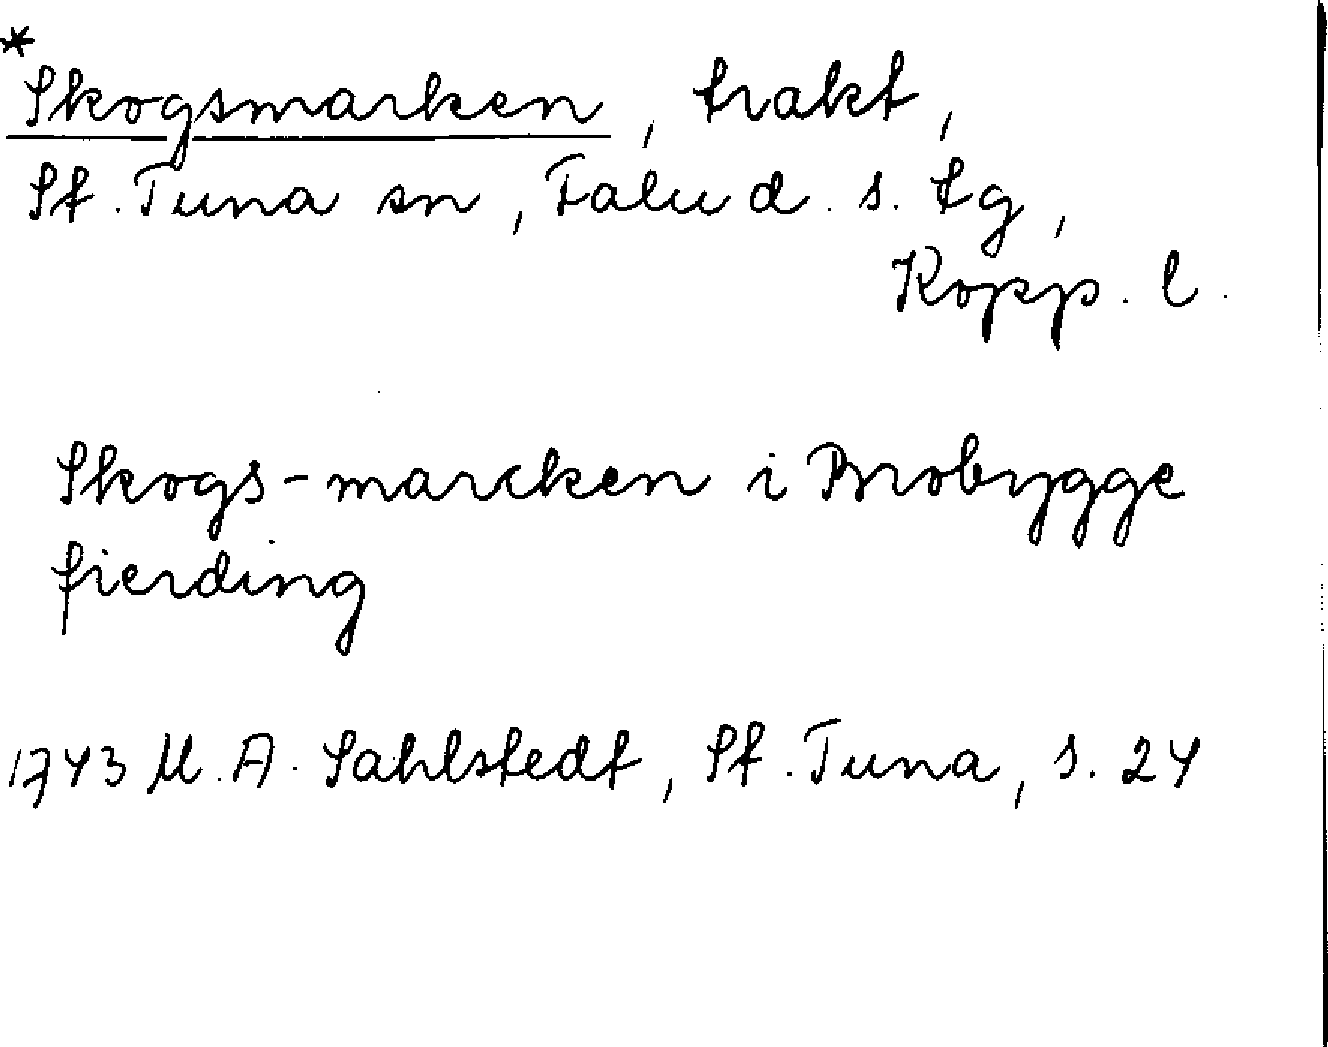 *
Skogsmarken, trakt,
St. Tuna sn, Falu d. s. tg,
Kopp. l.
Skogs-marcken i Brobygge
fierding
1743 M. A. Sahlstedt, St. Tuna, s. 24